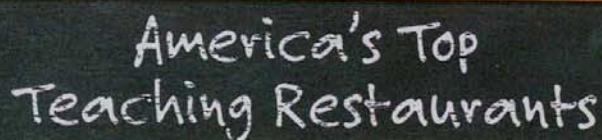 America's Top
Teaching Restaurants